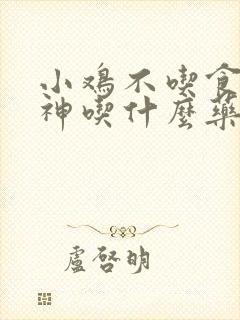 小鸡不喫食
神喫什麼藥
盧啓明